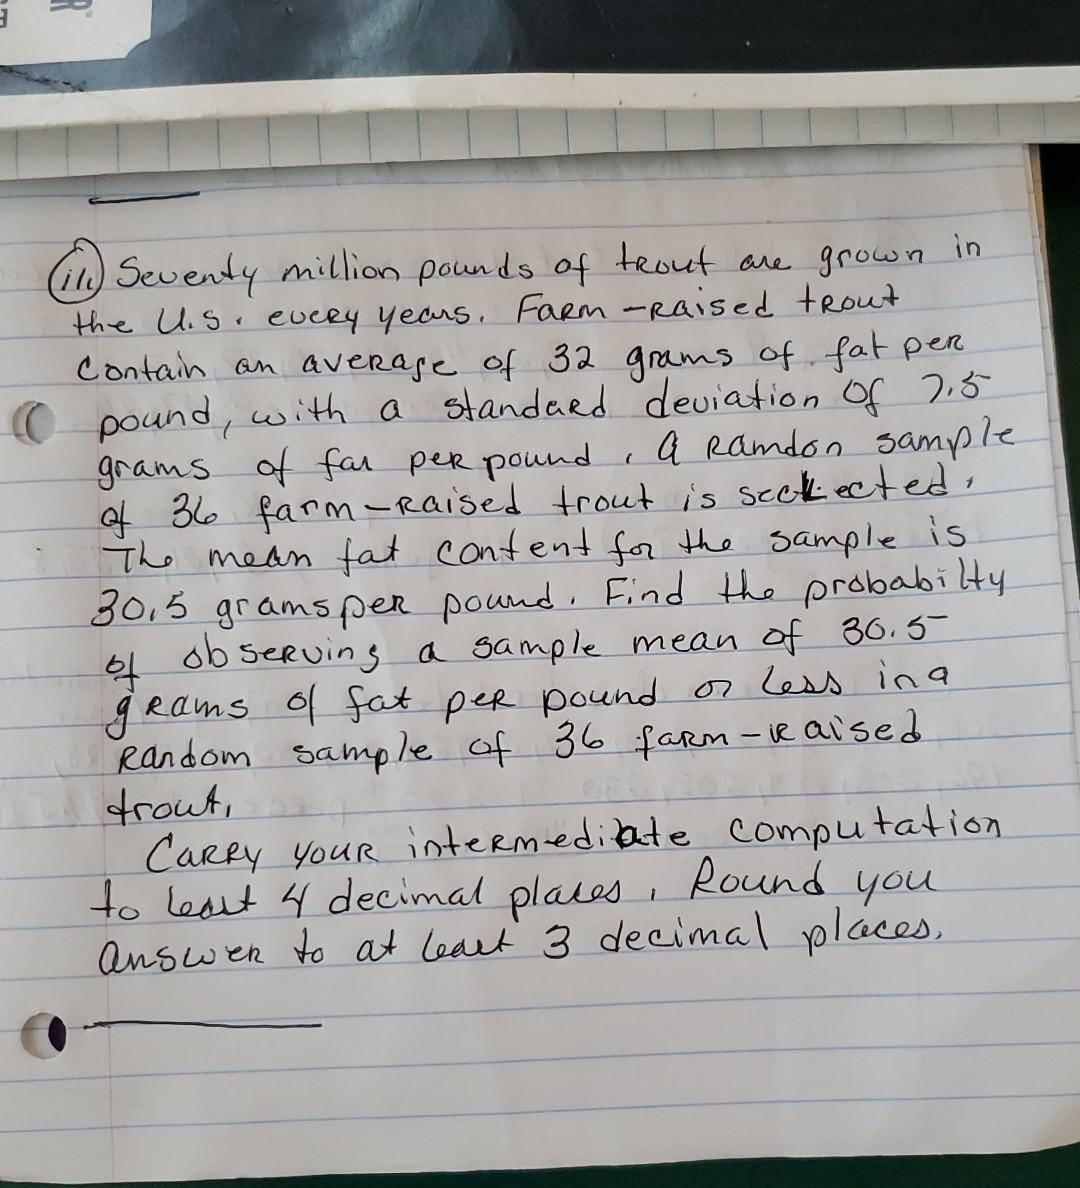 iii. Seventy million pounds of trout are grown in
the U.S. every years. Farm-raised trout
Contain an average of 32 grams of fat per
pound, with a standard deviation of 7.5
grams of far per pound. A Ramdon sample
of 36 farm-raised trout is seclected.
The mean fat content for the sample is
30.5 grams per pound. Find the probabilty
of observing a sample mean of 30.5
grams of fat per pound or less in a
Random sample of 36 farm-raised
trout.
Carry your intermediate computation
to least 4 decimal places. Round you
answer to at least 3 decimal places.